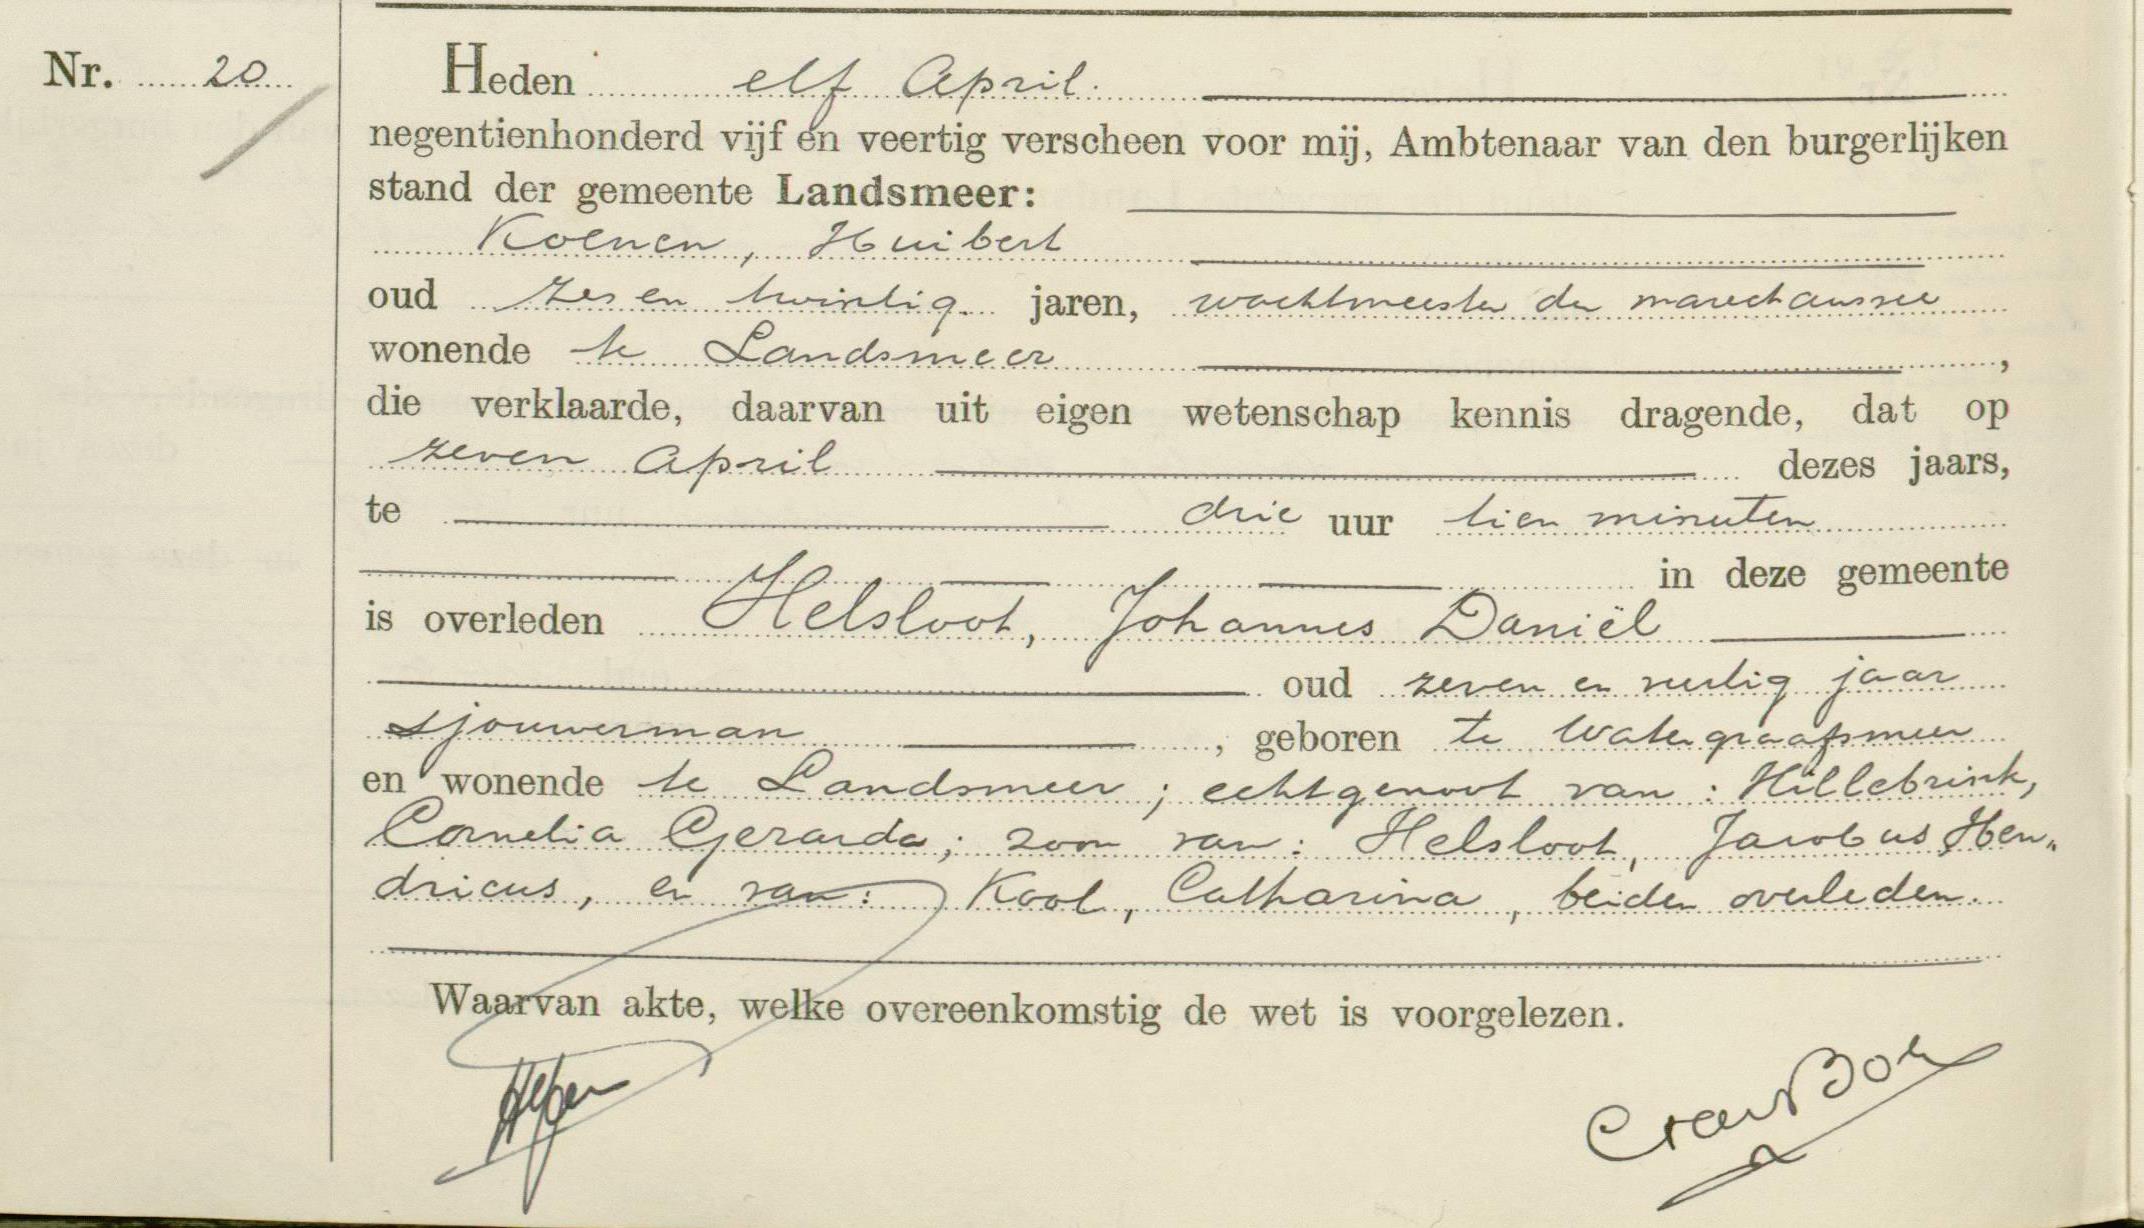 Nr. 20
Heden elf April.
negentienhonderd vijf en veertig verscheen voor mij, Ambtenaar van den burgerlijken
stand der gemeente Landsmeer:
Koenen, Huibert
oud zes en twintig jaren, wachtmeester der marechaussee
wonende te Landsmeer ,
die verklaarde, daarvan uit eigen wetenschap kennis dragende, dat op
zeven April dezes jaars,
te drie uur tien minuten
in deze gemeente
is overleden Helsloot, Johannes Daniël
oud zeven en veertig jaar
sjouwerman , geboren te Watergraafsmeer
en wonende te Landsmeer; echtgenoot van: Hillebrink,
Cornelia Gerarda; zoon van: Helsloot, Jacobus Hen„
dricus, en van: Kool, Catharina, beiden overleden.
Waarvan akte, welke overeenkomstig de wet is voorgelezen.